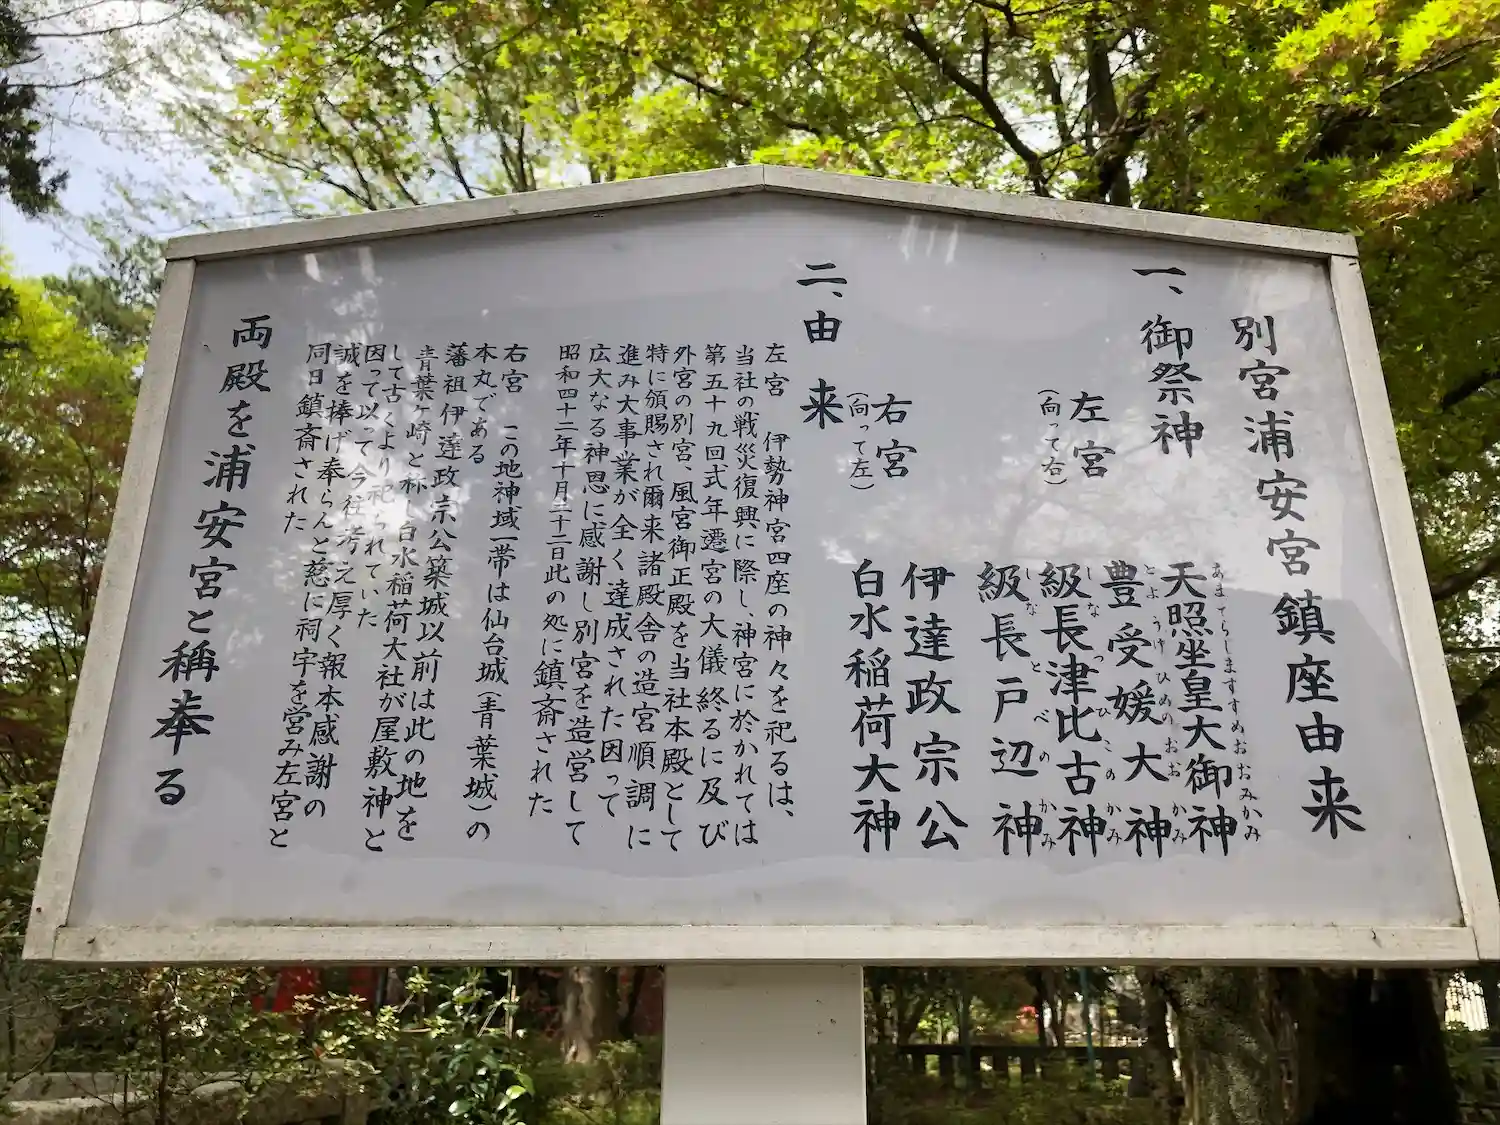 別宮浦安宮鎮座由来
一、御祭神
左宮
(向って右)
天照坐皇大御神
あまてらしますすめおおみかみ
豊受媛大神
とようけひめのおおかみ
級長津比古神
しなつひこのかみ
級長戸辺神
しなとべのかみ
右宮
(向って左)
伊達政宗公
白水稲荷大神
二、由来
左宮 伊勢神宮四座の神々を祀るは、
当社の戦災復興に際し、神宮に於かれては
第五十九回式年遷宮の大儀終るに及び
外宮の別宮、風宮御正殿を当社本殿として
特に頒賜され爾来諸殿舎の造宮順調に
進み大事業が全く達成された因って
広大なる神恩に感謝し別宮を造営して
昭和四十二年十月三十二日此の処に鎮斎された
右宮 この地神域一帯は仙台城(青葉城)の
本丸である
藩祖伊達政宗公築城以前は此の地を
青葉ヶ崎と称し白水稲荷大社が屋敷神と
して古くより祀られていた
因って以って今往考え厚く報本感謝の
誠を捧げ奉らんと慈に祠宇を営み左宮と
同日鎮斎された
両殿を浦安宮と稱奉る